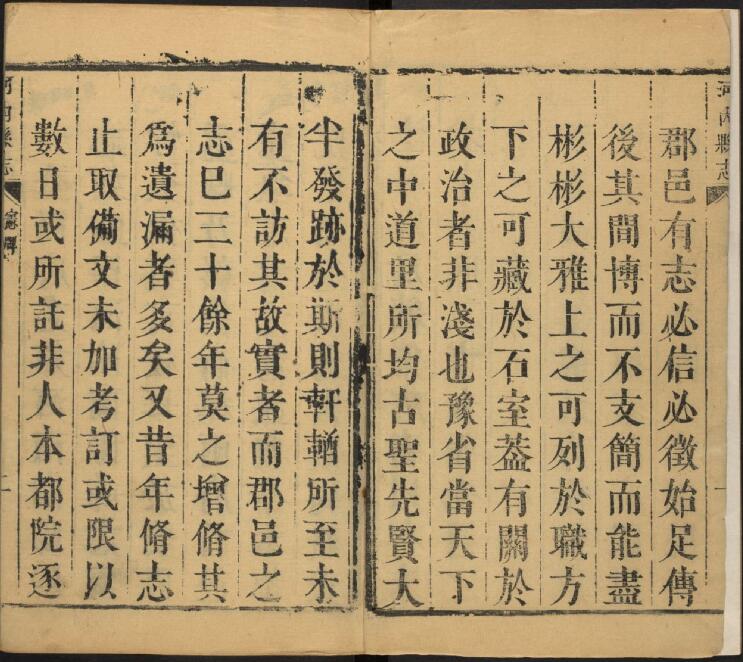 河內縣志
郡邑有志必信必徵始足傳
後其間博而不支簡而能盡
彬彬大雅上之可列於職方
下之可藏於石室葢有關於
政治者非淺也豫省當天下
之中道里所均古聖先賢大
半發跡於斯則軒輶所至未
有不訪其故實者而郡邑之
志巳三十餘年莫之增脩其
爲遺漏者多矣又昔年脩志
止取備文未加考訂或限以
數日或所託非人本都院逐
河內縣志
一